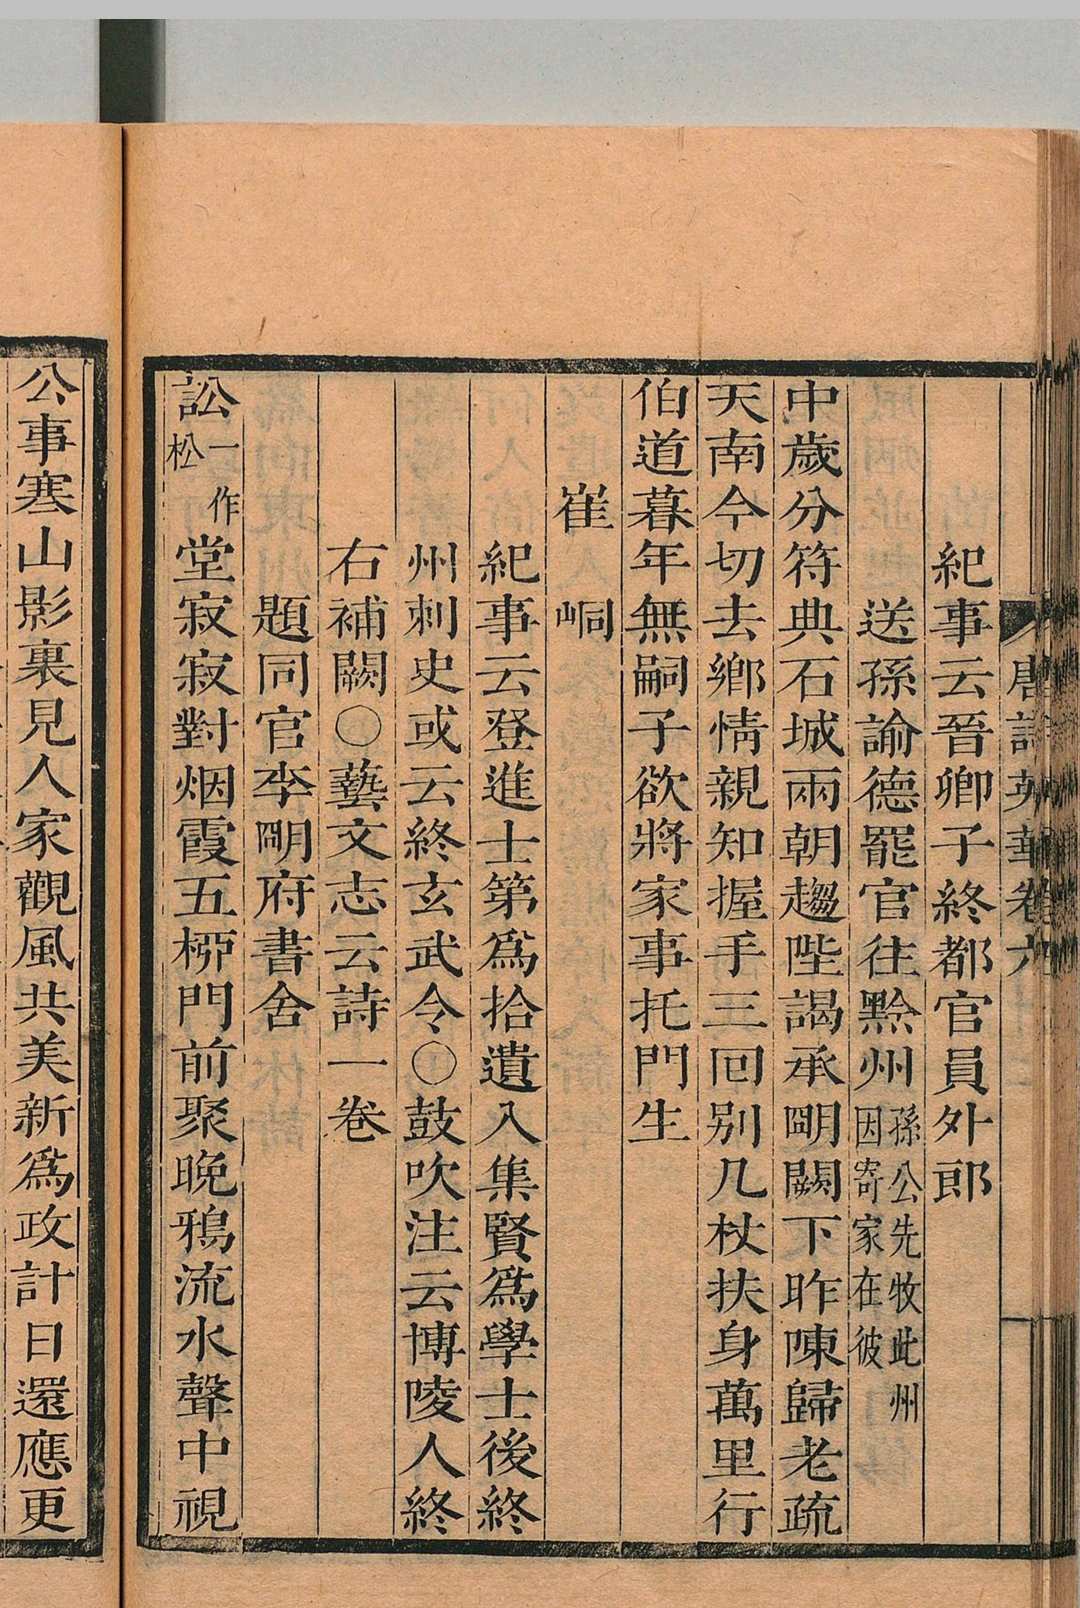 唐詩英華卷六
紀事云晉卿子終都官員外郎
送孫諭德罷官往黔州孫公先牧此州因寄家在彼
中歲分符典石城兩朝趨陛謁承明闕下昨陳歸老疏
天南今切去鄉情親知握手三回别几杖扶身萬里行
伯道暮年無嗣子欲將家事托門生
崔峒
紀事云登進士第爲拾遺入集賢爲學士後終
州刺史或云終玄武令○鼓吹注云博陵人終
右補闕○藝文志云詩一卷
題同官李明府書舍
訟一作松堂寂寂對烟霞五栁門前聚晚鴉流水聲中視
公事寒山影裏見人家觀風共美新爲政計日還應更